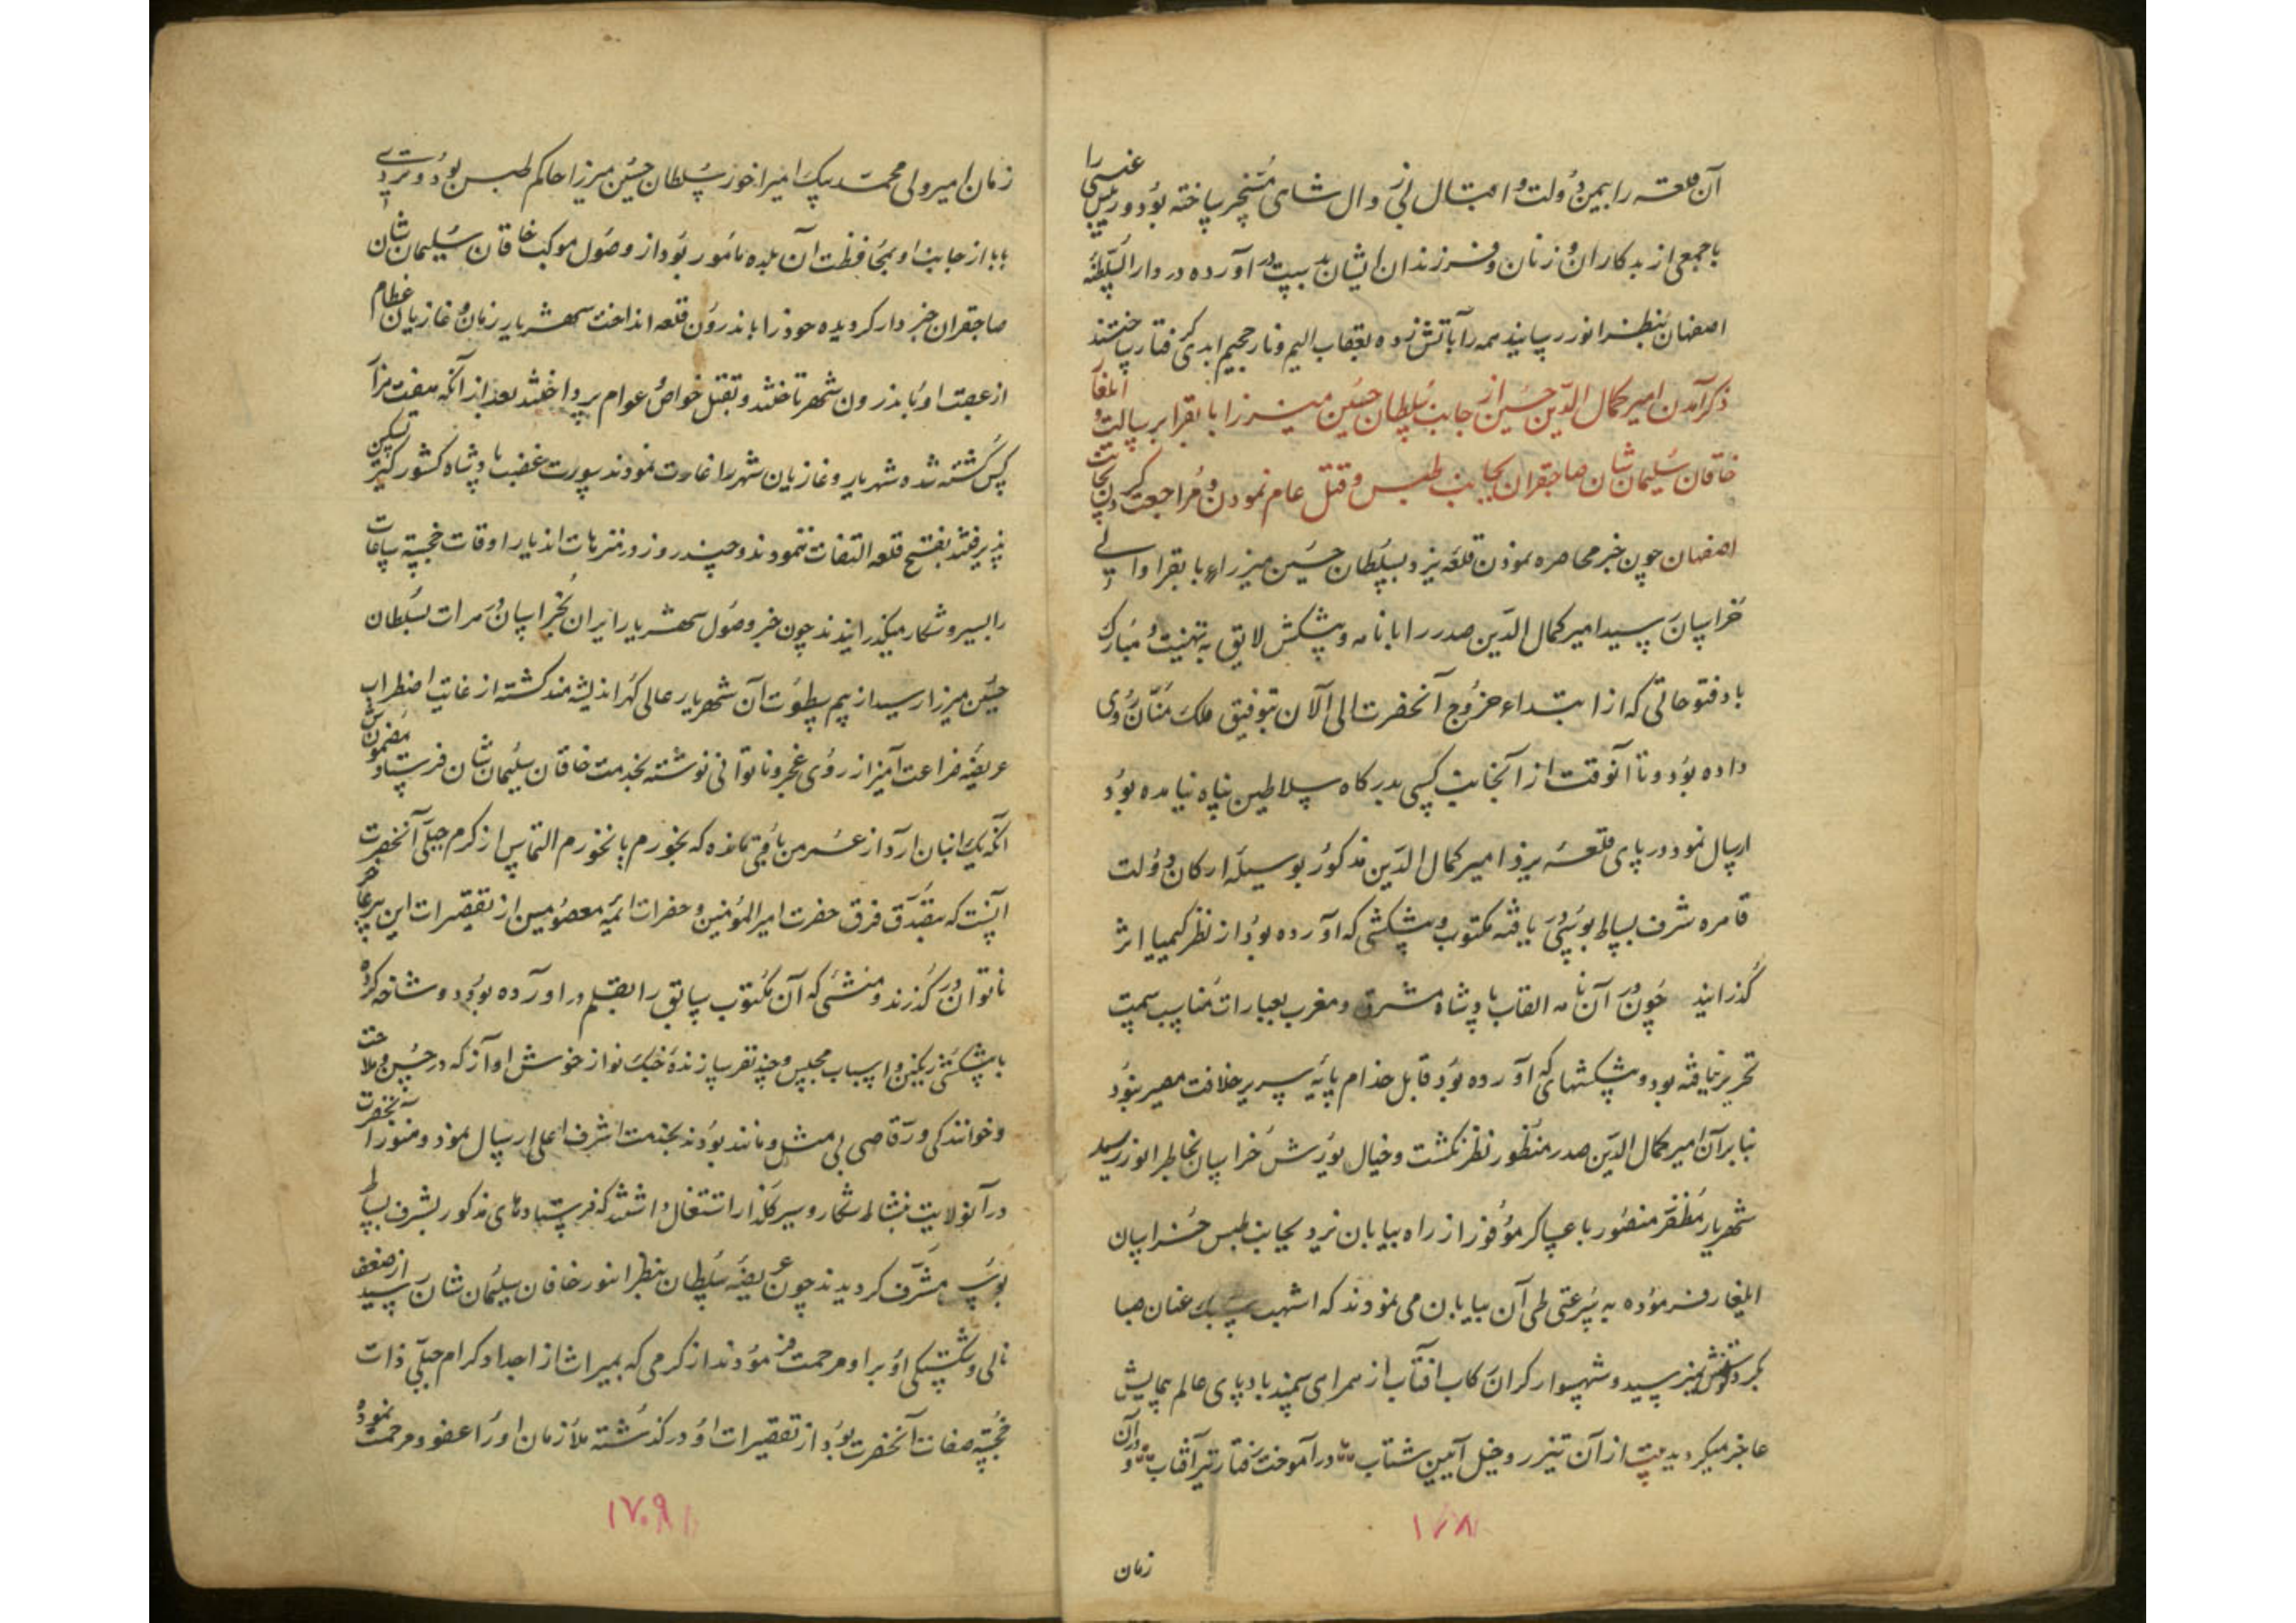 آن قلعه را بیمن دولت و اقبال بی زوال شاهی مسخر ساخته بود و رئیس غیبی را
با جمعی از بدکاران و زنان و فرزندان ایشان بدست در آورده در دار السلطنه
اصفهان بنظر انور رسانید همه را بآتش زده بعقاب الیم و نار جحیم ابدی گرفتار ساختند
ذکر آمدن امیر کمال الدین حسین از جانب سلطان حسین میرزا بایقرا برسالت و ایلغار
خاقان سلیمان شان صاحبقران بجانب طبس و قتل عام نمودن و مراجعت کردن بجانب
اصفهان چون خبر محاصره نمودن قلعه یزد بسلطان حسین میرزاء بایقرا والی
خراسان رسید امیر کمال الدین صدر را با نامه و پیشکش لایق به تهنیت و مبارک
باد فتوحاتی که از ابتداء خروج آنحضرت الی الآن بتوفیق ملک منان روی
داده بود و تا آنوقت از آنجانب کسی بدرگاه سلاطین پناه نیامده بود
ارسال نمود در پای قلعه یزد امیر کمال الدین مذکور بوسیله ارکان دولت
قاهره شرف بساط بوسی یافته مکتوب و پیشکشی که آورده بود از نظر کیمیا اثر
گذرانید چون در آن نامه القاب پادشاه مشرق و مغرب بعبارات مناسب سمت
تحریر نیافته بود و پیشکشهای که آورده بود قابل خدام پایه سریر خلافت مصیر نبود
بنا بر آن امیر کمال الدین صدر منظور نظر نگشت و خیال یورش خراسان بخاطر انور رسید
شهریار مظفر منصور با عساکر موفور از راه بیابان یزد بجانب طبس خراسان
ایلغار فرموده به سرعتی طی آن بیابان می نمودند که اشهب سبک عنان صبا
بگردش نمیرسید و شهسوار گران رکاب آفتاب از همراهی سمند بادپای عالم پیمایش
عاجز میگردید بیت از آن تیزرو خیل آیین شتاب در آموخت رفتار تیر آفتاب و در آن
۱۷۸
زمان
زمان امیر ولی محمد بیک امیر اخور سلطان حسین میرزا حاکم طبس بود و تردی
بابا از جانب او بمحافظت آن بلده مامور بود از وصول موکب خاقان سلیمان شان
صاحبقران خبردار گردیده خود را باندرون قلعه انداخت شهریار زمان و غازیان عظام
از عقب او باندرون شهر تاختند و بقتل خواص و عوام پرداختند بعد از آنکه هفت هزار
کس کشته شده شهریار و غازیان شهر را غارت نمودند سورت غضب پادشاه کشور گیر تسکین
پذیرفتند بفتح قلعه التفات ننمودند و چند روز در منزهات اندیار اوقات خجسته ساعات
را بسیر و شکار میگذرانیدند چون خبر وصول شهریار ایران بخراسان و هرات بسلطان
حسین میرزا رسید از بیم سطوت آن شهریار عالی گهر اندیشه مند گشته از غایت اضطراب
عریضه ضراعت آمیز از روی عجز و ناتوانی نوشته بخدمت خاقان سلیمان شان فرستاد مضمونش
آنکه یک انبان آرد از عمر من باقی نمانده که بخورم یا نخورم التماس از کرم جبلی آنحضرت
اینست که بتصدق فرق حضرت امیر المؤمنین و حضرات ائمه معصومین از تقصیرات این پیر عاجز
ناتوان در گذرند و منشئی که آن مکتوب سابق را بقلم در آورده بود دو شاخه کرده
با پیشکش رنگین و اسباب مجلس و چند نفر سازنده چنگ نواز خوش آواز که در حسن و ملاحت
و خوانندگی و رقاصی بی مثل و مانند بودند بخدمت اشرف اعلی ارسال نمود و هنوز آنحضرت
در آنولایت بنشاط شکار و سیر گلذار اشتغال داشتند که فرستادهای مذکور بشرف بساط
بوسی مشرف گردیدند چون عریضه سلطان بنظر انور خاقان سلیمان شان رسید از ضعف
نالی و شکستگی او بر او مرحمت فرمودند از کرمی که بمیراث از اجداد کرام جبلی ذات
خجسته صفات آنحضرت بود از تقصیرات او در گذشته ملازمان او را عفو و مرحمت نموده
۱۷۰۹